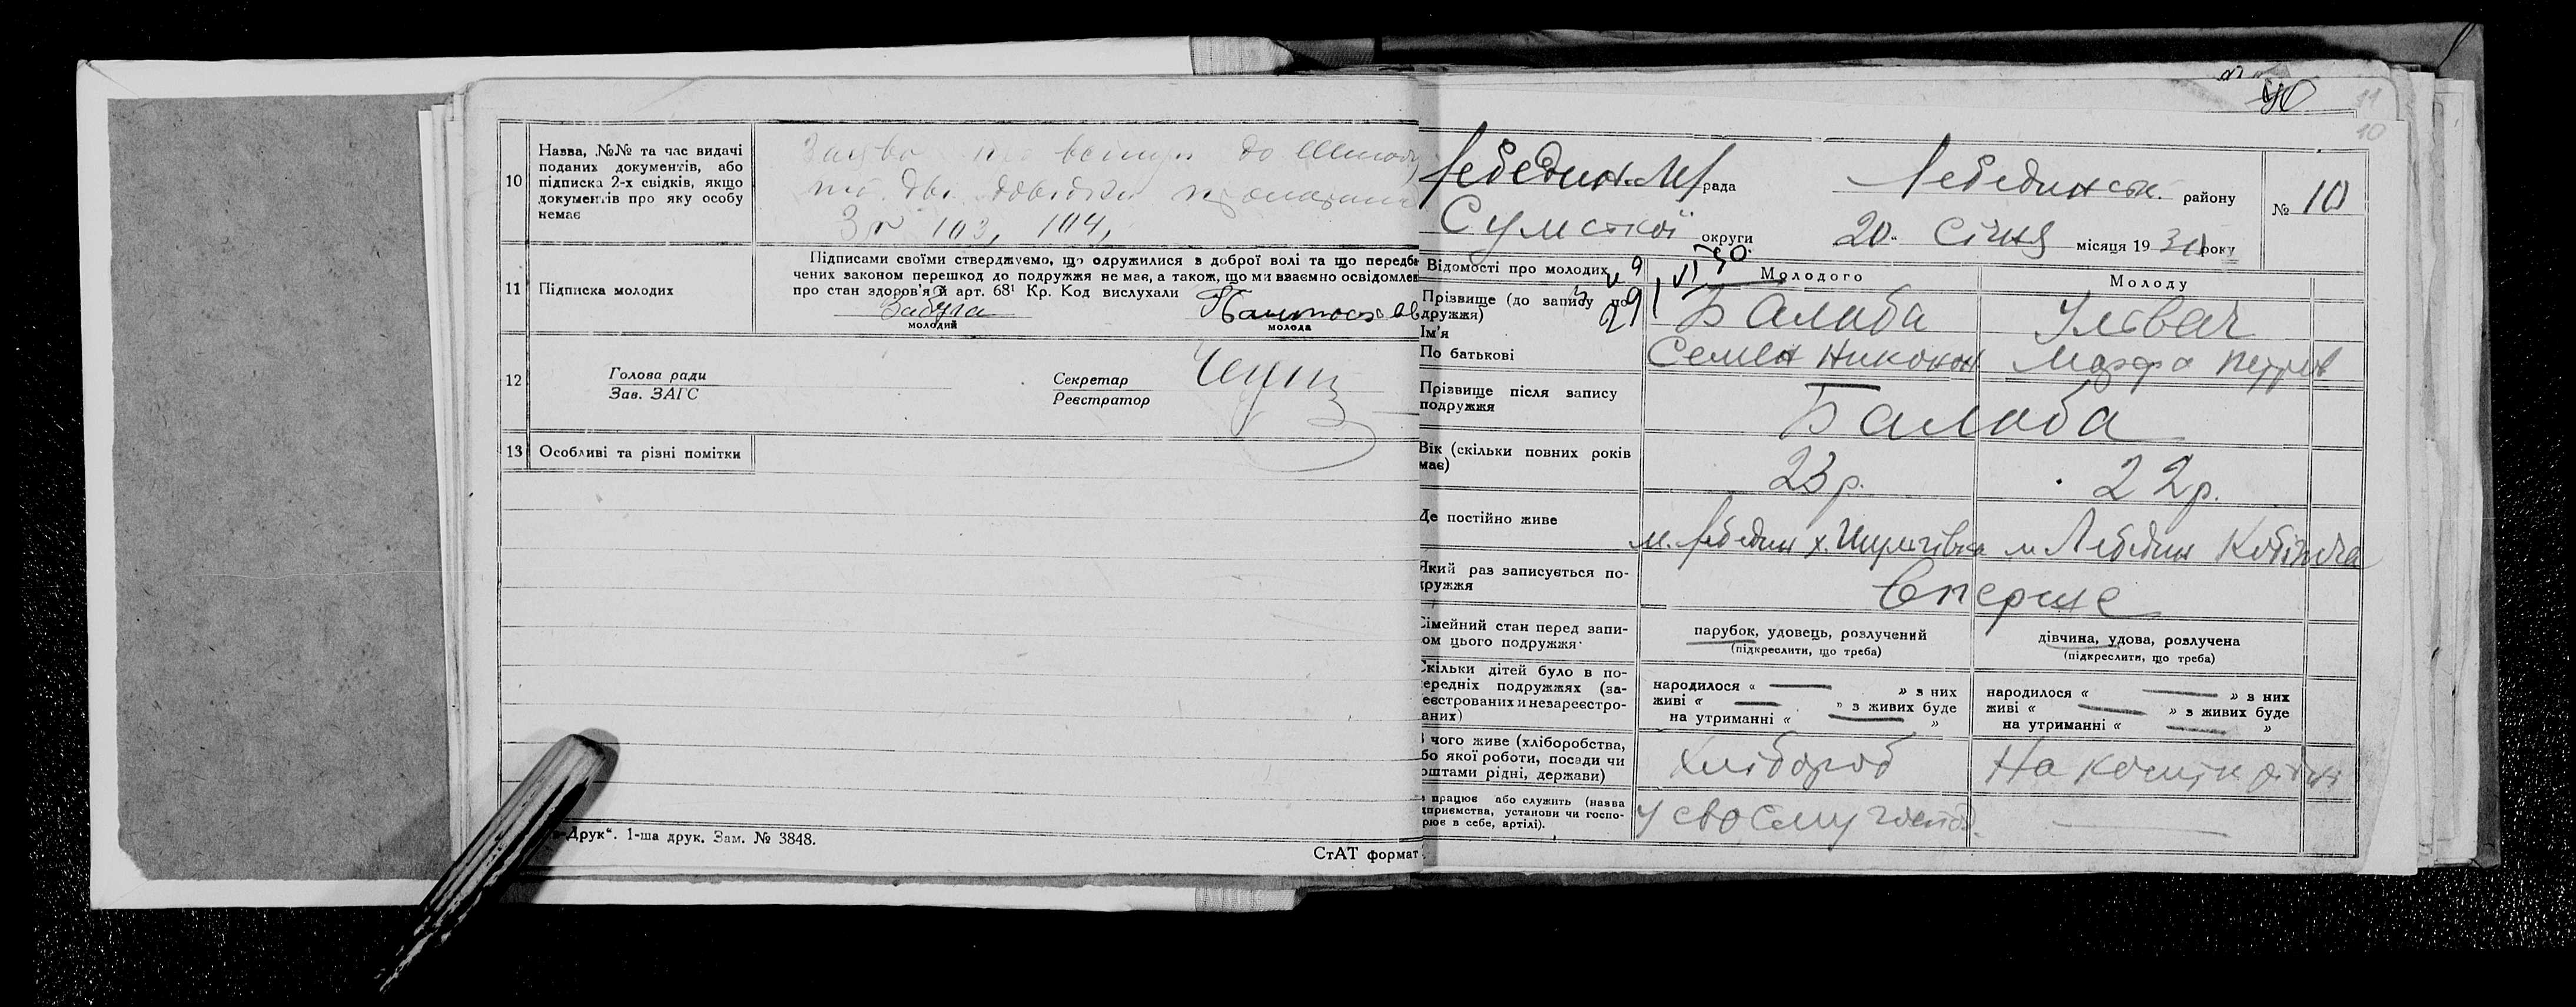 10
Назва, №№ та час видачі
поданих документів, або
підписка 2-х свідків, якщо
документів про яку особу
немає
до
дві довідки
103, 104,
11
Підписка молодих
Підписами своїми стверджуємо, що одружилися з доброї волі та що передба
чених законом перешкод до подружжя не має, а також, що ми взаємно освідомлен
про стан здоров'я й арт. 68¹ Кр. Код вислухали
молодий
молода
12
Голова ради
Зав. ЗАГС
Секретар
Реєстратор
13
Особливі та різні помітки
-Друк". 1-ша друк. Зам. № 3848.
СтАТ формат
40
11
10
Лебедин. М/рада
Лебединськ. району
№ 10
Сумської округи
20 Січня місяця 1930 року
Відомості про молодих
Молодого
Молоду
Прізвище (до запису по
дружжя)
Балаба
Ім'я
По батькові
Семен Никонон.
Марфа Петров
Прізвище після запису
подружжя
Балаба
Вік (скільки повних років
має)
23 р.
22 р.
Де постійно живе
м. Лебедин х.
м Лебедин
Який раз записується по-
дружжя
Вперше
Сімейний стан перед запи-
ом цього подружжя
парубок, удовець, розлучений
(підкреслити, що треба)
дівчина, удова, розлучена
(підкреслити, що треба)
Скільки дітей було в по-
ередніх подружжях (за-
еєстрованих и незареєстро-
аних)
народилося « — » з них
живі « — » з живих буде
на утриманні « — »
народилося « — » з них
живі « — » з живих буде
на утриманні « — »
З чого живе (хліборобства,
бо якої роботи, посади чи
оштами рідні, держави)
Хлібороб
На кошти рідні
працює або служить (назва
дприємства, установи чи госпо-
рює в себе, артілі).
у своєму господ.
—